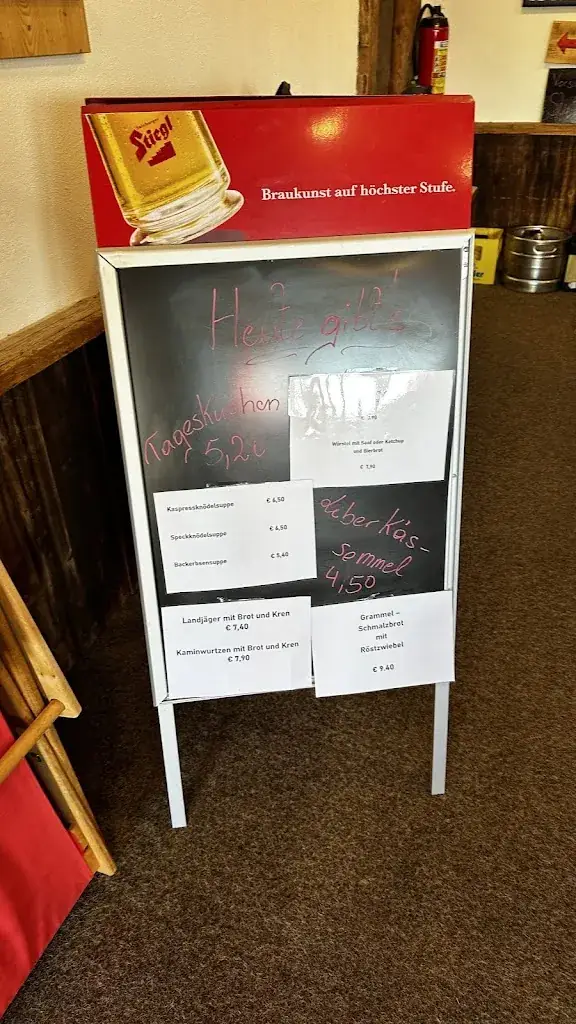 Stiegl
Braukunst auf höchster Stufe.
Heute gibt's
Tageskuchen
5,20
Würstel mit Senf oder Ketchup
und Bierbrot
€ 7,90
Kaspressknödelsuppe € 6,50
Speckknödelsuppe € 6,50
Backerbsensuppe € 5,40
Leberkäs-
semmel
4,50
Landjäger mit Brot und Kren
€ 7,40
Kaminwurtzen mit Brot und Kren
€ 7,90
Grammel –
Schmalzbrot
mit
Röstzwiebel
€ 9,40